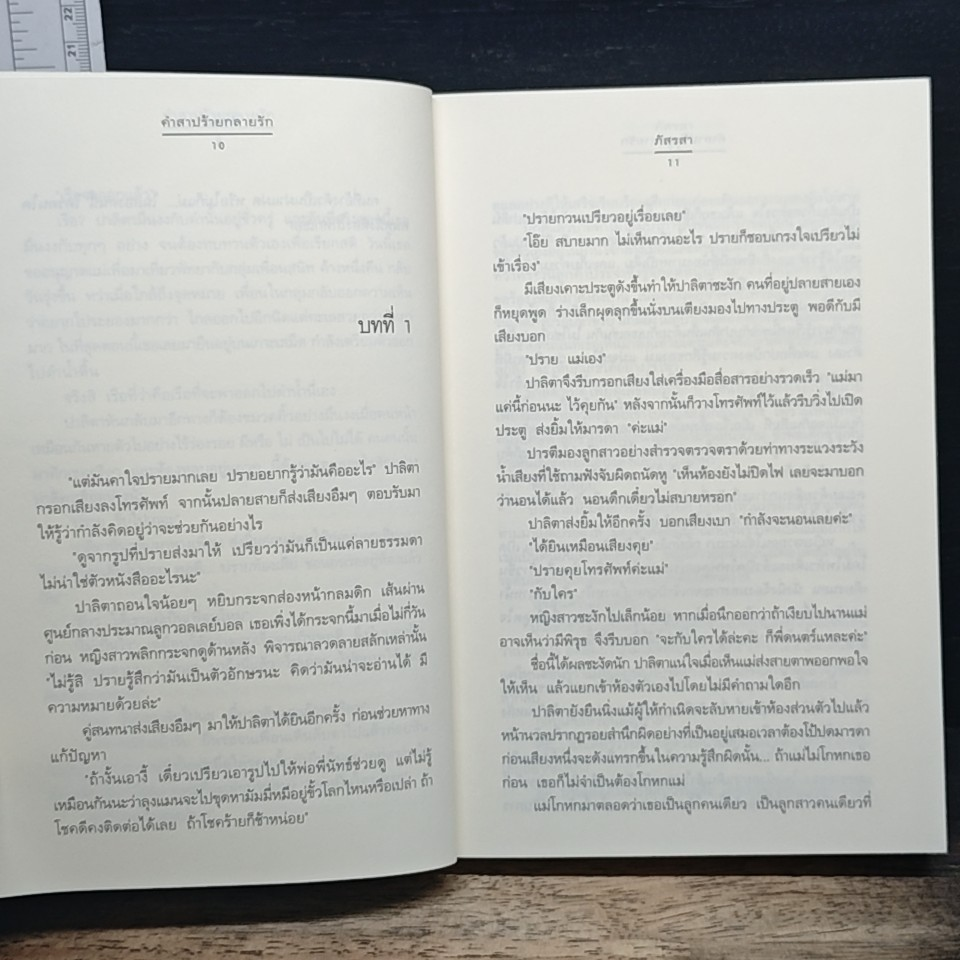 22
21
คำสาปร้ายกลายรัก
10
บทที่ 1
"แต่มันคาใจปรายมากเลย ปรายอยากรู้ว่ามันคืออะไร" ปาลิตา
กรอกเสียงลงโทรศัพท์ จากนั้นปลายสายก็ส่งเสียงอืมๆ ตอบรับมา
ให้รู้ว่ากำลังคิดอยู่ว่าจะช่วยกันอย่างไร
"ดูจากรูปที่ปรายส่งมาให้ เปรียวว่ามันก็เป็นแค่ลายธรรมดา
ไม่น่าใช่ตัวหนังสืออะไรนะ"
ปาลิตาถอนใจน้อยๆ หยิบกระจกส่องหน้ากลมดิก เส้นผ่าน
ศูนย์กลางประมาณลูกวอลเลย์บอล เธอเพิ่งได้กระจกนี้มาเมื่อไม่กี่วัน
ก่อน หญิงสาวพลิกกระจกดูด้านหลัง พิจารณาลวดลายสลักเหล่านั้น
"ไม่รู้สิ ปรายรู้สึกว่ามันเป็นตัวอักษรนะ คิดว่ามันน่าจะอ่านได้ มี
ความหมายด้วยล่ะ"
คู่สนทนาส่งเสียงอืมๆ มาให้ปาลิตาได้ยินอีกครั้ง ก่อนช่วยหาทาง
แก้ปัญหา
"ถ้างั้นเอางี้ เดี๋ยวเปรียวเอารูปไปให้พ่อพี่นัทธ์ช่วยดู แต่ไม่รู้
เหมือนกันนะว่าลุงแมนจะไปขุดหามัมมี่หมีอยู่ขั้วโลกไหนหรือเปล่า ถ้า
โชคดีคงติดต่อได้เลย ถ้าโชคร้ายก็ช้าหน่อย"
ภัสรสา
11
"ปรายกวนเปรียวอยู่เรื่อยเลย"
"โอ๊ย สบายมาก ไม่เห็นกวนอะไร ปรายก็ชอบเกรงใจเปรียวไม่
เข้าเรื่อง"
มีเสียงเคาะประตูดังขึ้นทำให้ปาลิตาชะงัก คนที่อยู่ปลายสายเอง
ก็หยุดพูด ร่างเล็กผุดลุกขึ้นนั่งบนเตียงมองไปทางประตู พอดีกับมี
เสียงบอก
"ปราย แม่เอง"
ปาลิตาจึงรีบกรอกเสียงใส่เครื่องมือสื่อสารอย่างรวดเร็ว "แม่มา
แค่นี้ก่อนนะ ไว้คุยกัน" หลังจากนั้นก็วางโทรศัพท์ไว้แล้วรีบวิ่งไปเปิด
ประตู ส่งยิ้มให้มารดา "ค่ะแม่"
ปารตีมองลูกสาวอย่างสำรวจตรวจตราด้วยท่าทางระแวงระวัง
น้ำเสียงที่ใช้ถามฟังจับผิดถนัดหู "เห็นห้องยังไม่ปิดไฟ เลยจะมาบอก
ว่านอนได้แล้ว นอนดึกเดี๋ยวไม่สบายหรอก"
ปาลิตาส่งยิ้มให้อีกครั้ง บอกเสียงเบา "กำลังจะนอนเลยค่ะ"
"ได้ยินเหมือนเสียงคุย"
"ปรายคุยโทรศัพท์ค่ะแม่"
"กับใคร"
หญิงสาวชะงักไปเล็กน้อย หากเมื่อนึกออกว่าถ้าเงียบไปนานแม่
อาจเห็นว่ามีพิรุธ จึงรีบบอก "จะกับใครได้ล่ะคะ ก็พี่ดนตร์แหละค่ะ"
ชื่อนี้ได้ผลชะงัดนัก ปาลิตาแน่ใจเมื่อเห็นแม่ส่งสายตาพออกพอใจ
ให้เห็น แล้วแยกเข้าห้องตัวเองไปโดยไม่มีคำถามใดอีก
ปาลิตายังยืนนิ่งแม้ผู้ให้กำเนิดจะลับหายเข้าห้องส่วนตัวไปแล้ว
หน้านวลปรากฏรอยสำนึกผิดอย่างที่เป็นอยู่เสมอเวลาต้องโป้ปดมารดา
ก่อนเสียงหนึ่งจะดังแทรกขึ้นในความรู้สึกผิดนั้น... ถ้าแม่ไม่โกหกเธอ
ก่อน เธอก็ไม่จำเป็นต้องโกหกแม่
แม่โกหกมาตลอดว่าเธอเป็นลูกคนเดียว เป็นลูกสาวคนเดียวที่